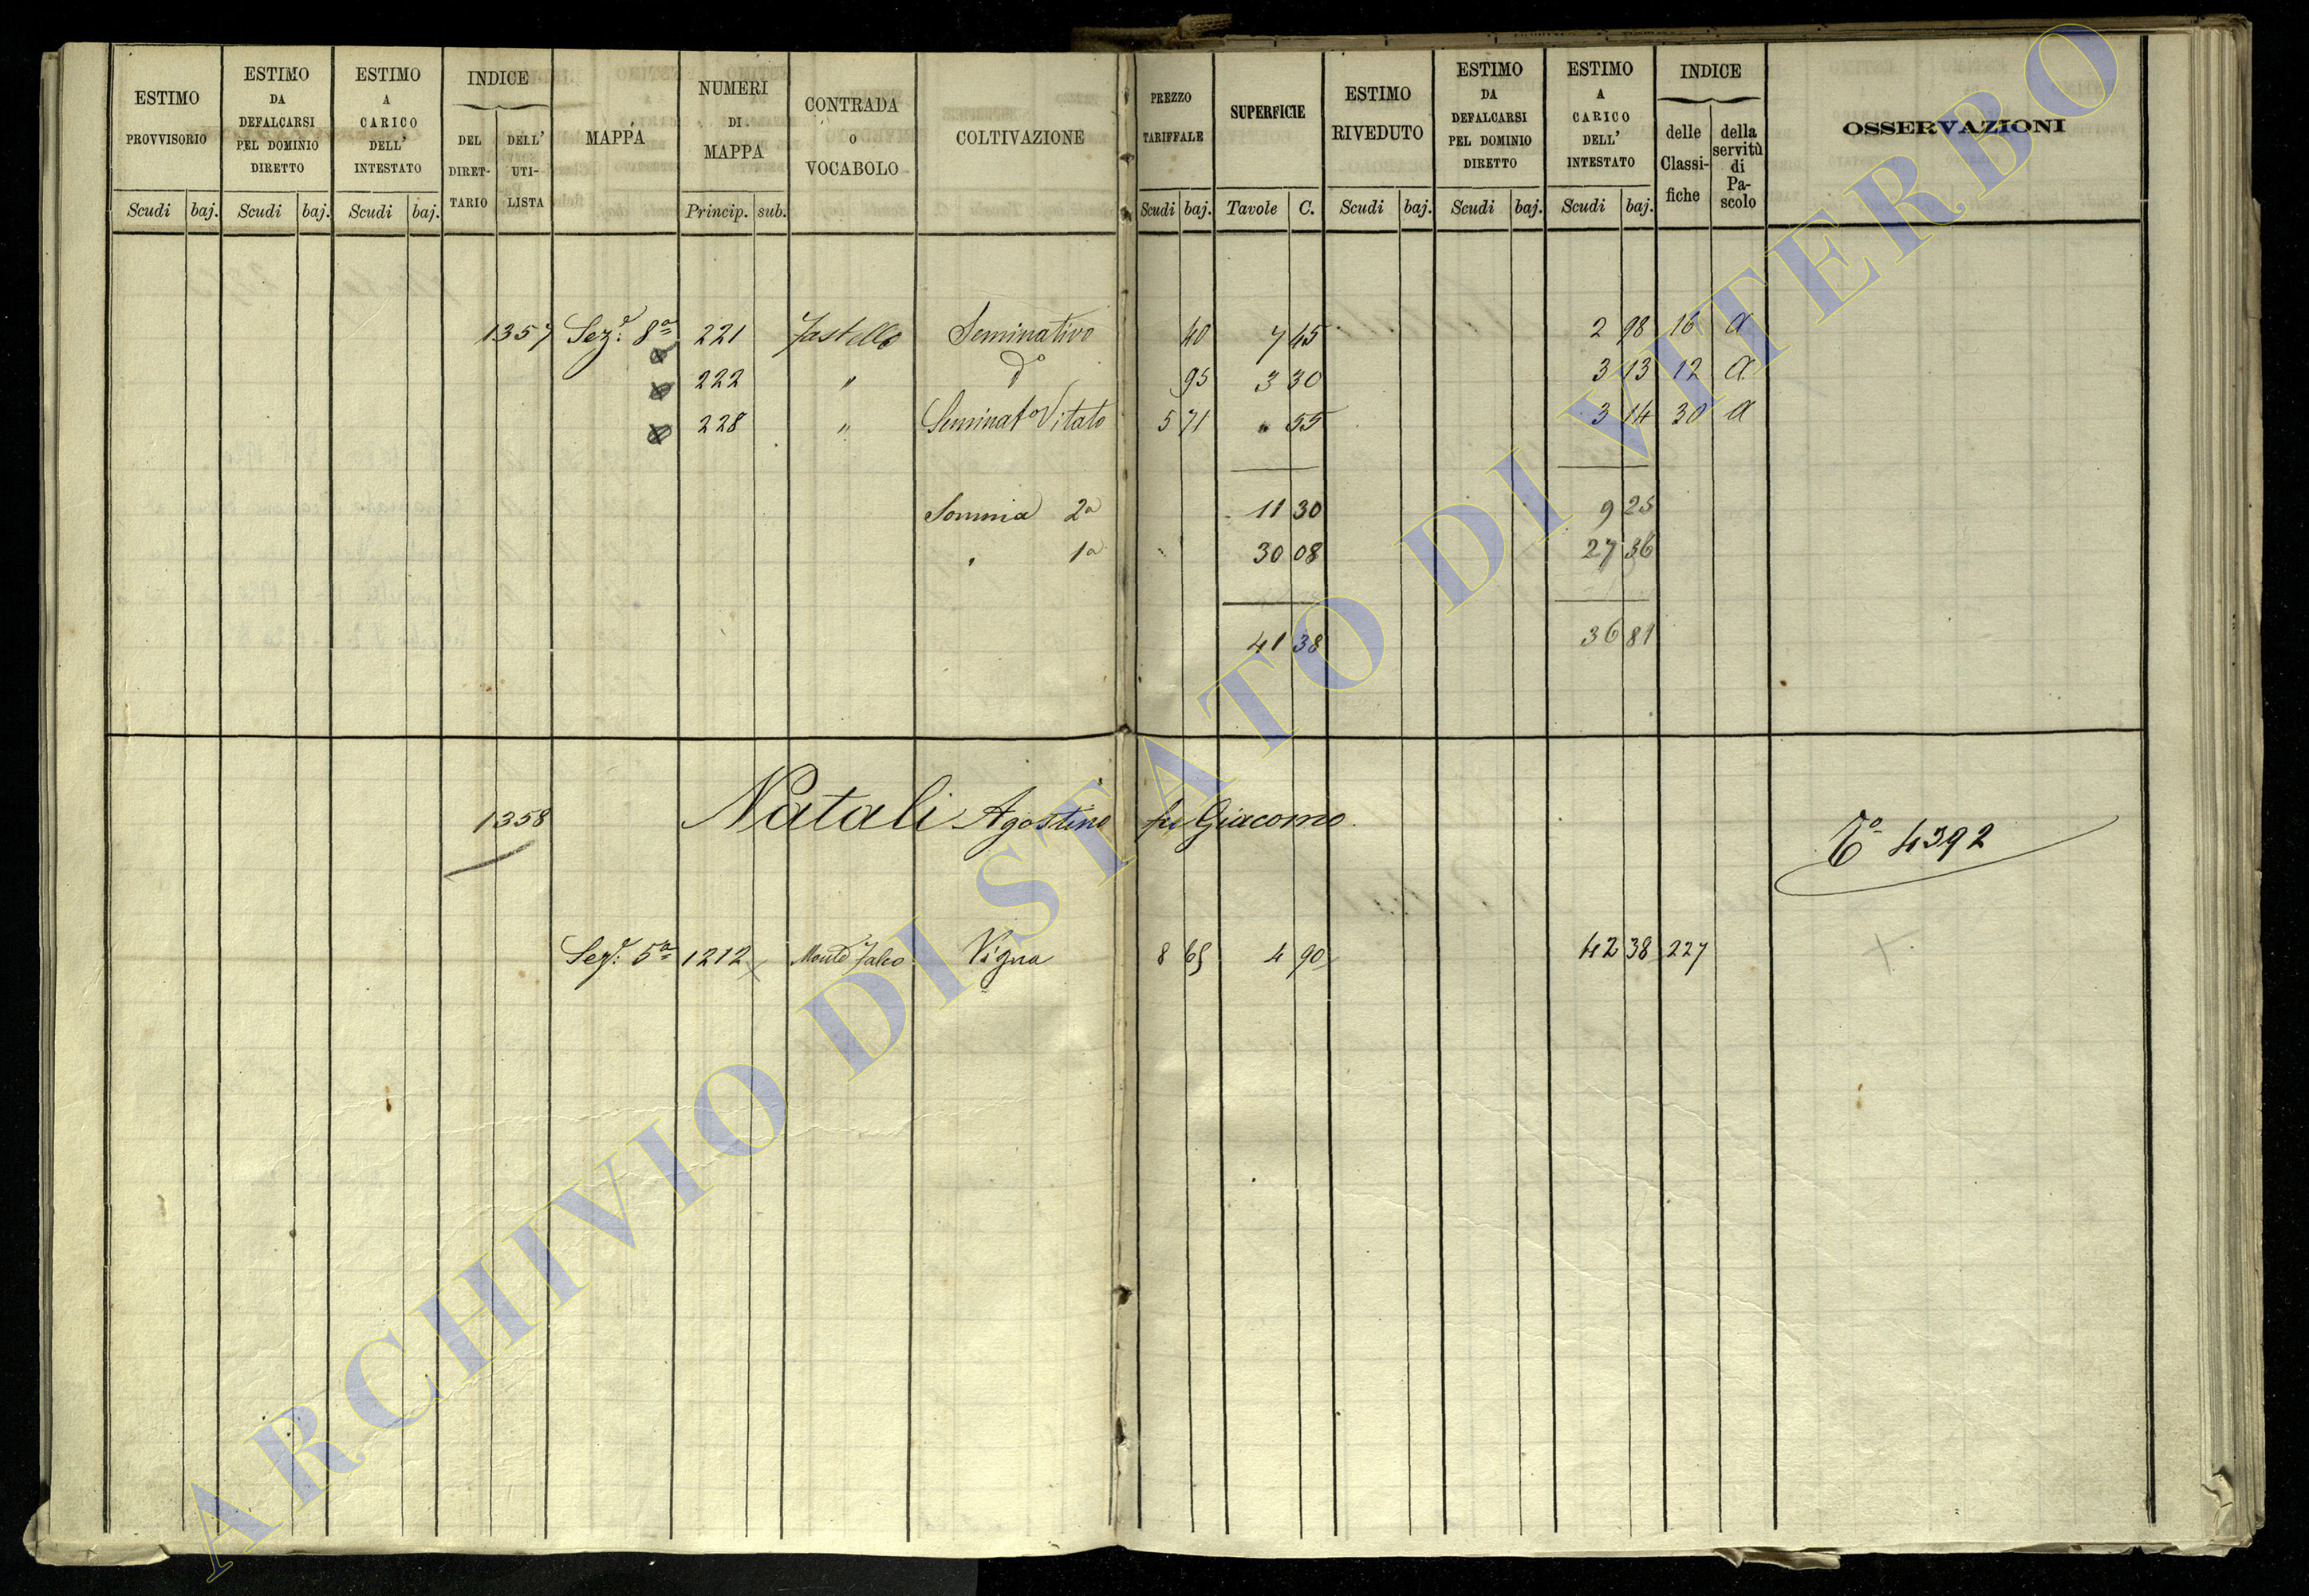 ESTIMO PROVVISORIO Scudi baj.
ESTIMO DA DEFALCARSI PEL DOMINIO DIRETTO Scudi baj.
ESTIMO A CARICO DELL' INTESTATO Scudi baj.
INDICE DEL DIRET- TARIO DELL' UTI- LISTA
MAPPA
NUMERI DI MAPPA Princip. sub.
CONTRADA O VOCABOLO
COLTIVAZIONE
PREZZO TARIFFALE Scudi baj.
SUPERFICIE Tavole C.
ESTIMO RIVEDUTO Scudi baj.
ESTIMO DA DEFALCARSI PEL DOMINIO DIRETTO Scudi baj.
ESTIMO A CARICO DELL' INTESTATO Scudi baj.
INDICE delle Classi- fiche della servitù di Pa- scolo
OSSERVAZIONI
1357 Sez.e 8a 221 Fastello Seminativo 40 7 45 2 98 16 a
222 " do 95 3 30 3 13 12 a
228 " Seminato Vitato 5 71 " 55 3 14 30 a
Somma 2a 11 30 9 25
" 1a 30 08 27 36
41 38 36 81
1358 Natali Agostino fu Giacomo To 4392
Sez.e 5a 1212 Monte Falco Vigna 8 65 4 90 42 38 227
ARCHIVIO DI STATO DI VITERBO